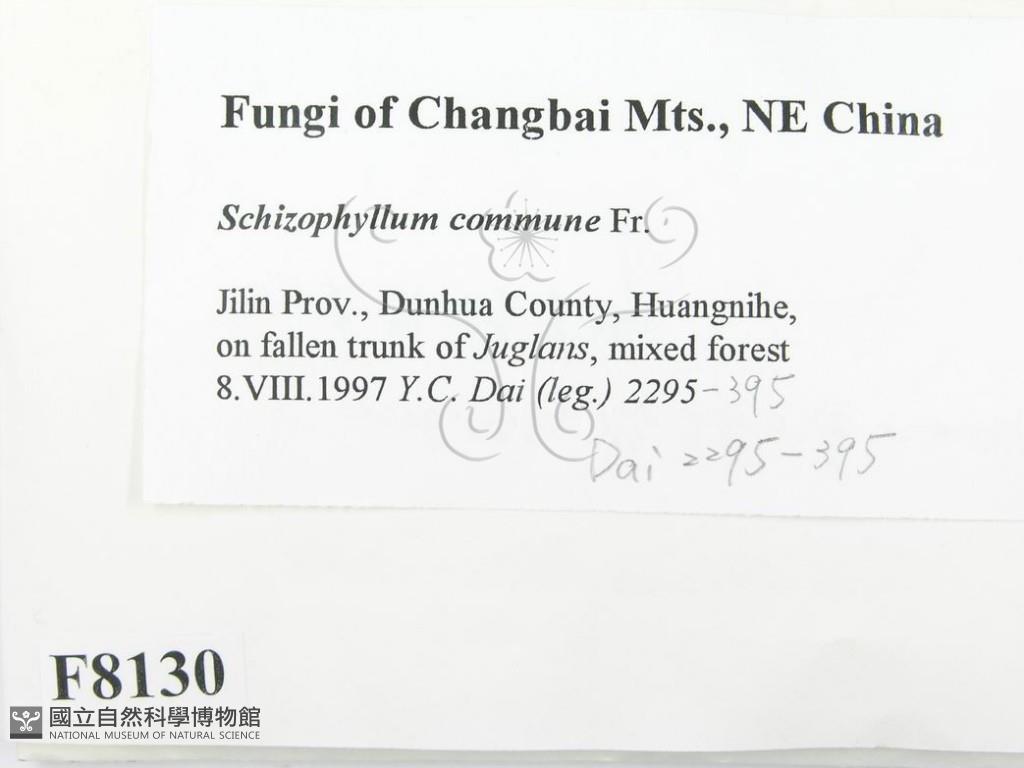 Fungi of Changbai Mts., NE China
Schizophyllum commune Fr.
Jilin Prov., Dunhua County, Huangnihe,
on fallen trunk of Juglans, mixed forest
8.VIII.1997 Y.C. Dai (leg.) 2295-395
Dai 2295-395
F8130
國立自然科學博物館
NATIONAL MUSEUM OF NATURAL SCIENCE